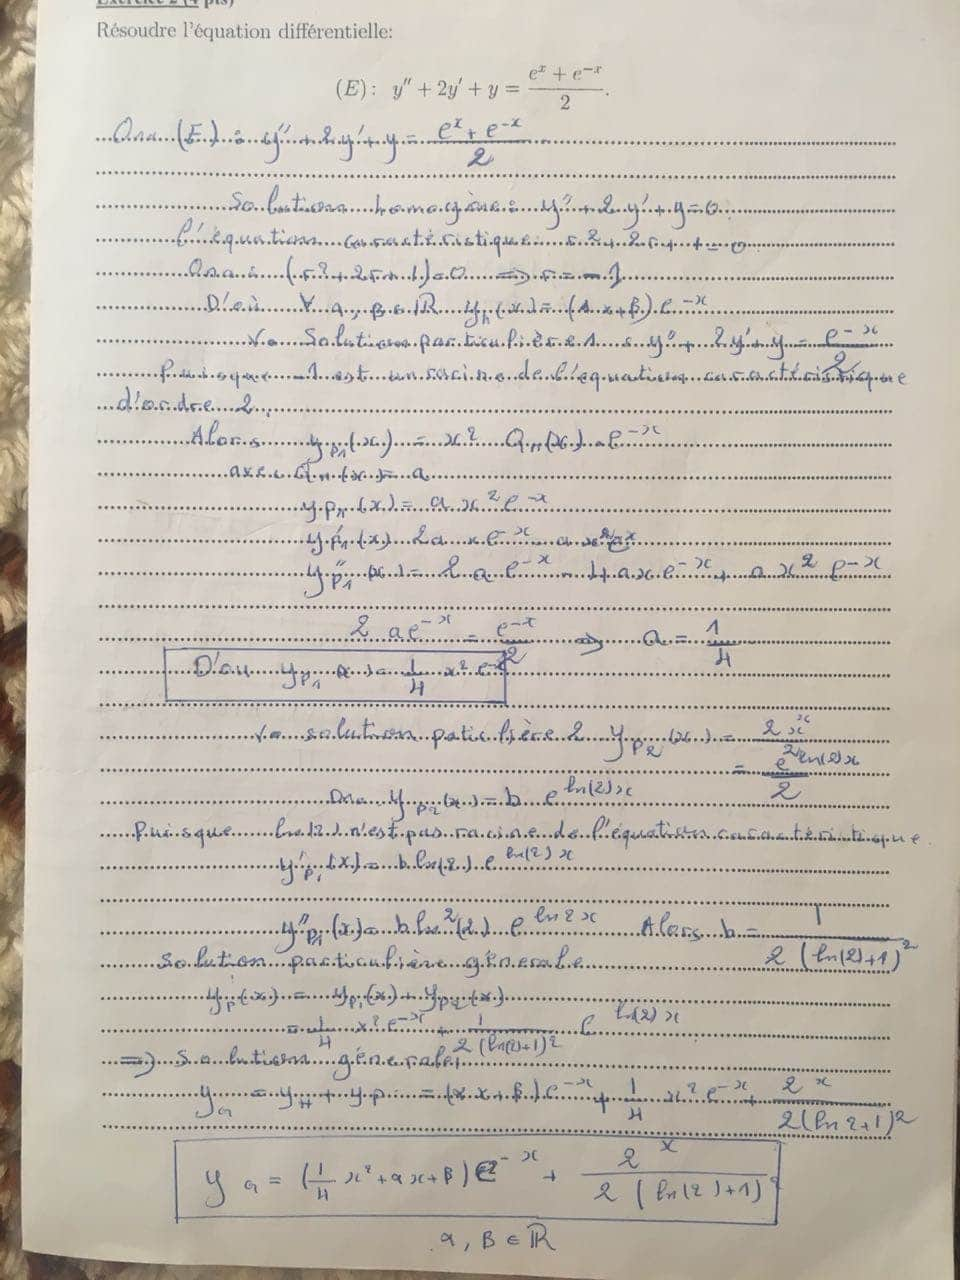 Exercice 2 (4 pts)
Résoudre l'équation différentielle:
(E): y'' + 2y' + y = (e^x + e^-x)/2.
On a (E) : y'' + 2y' + y = (e^x + e^-x)/2
Solution homogène : y'' + 2y' + y = 0
l'équation caractéristique : r² + 2r + 1 = 0
On a : (r² + 2r + 1) = 0 => r = -1
D'où ∀ α, β ∈ IR y_h(x) = (αx + β) e^-x
Solution particulière 1 : y'' + 2y' + y = e^-x/2
Puisque -1 est un racine de l'équation caractéristique
d'ordre 2
Alors y_p1(x) = x² Q_n(x) e^-x
avec Q_n(x) = a
y_p1(x) = a x² e^-x
y'_p1(x) = 2a x e^-x - a x² e^-x
y''_p1(x) = 2a e^-x - 4ax e^-x + a x² e^-x
2 a e^-x = e^-x/2 => a = 1/4
D'où y_p1(x) = 1/4 x² e^-x
solution paticulière 2 y_p2(x) = 2^x
= e^ln(2)x/2
On a y_p2(x) = b e^ln(2)x
Puisque ln(2) n'est pas racine de l'équation caractéristique
y'_p1(x) = b ln(2) e^ln(2)x
y''_p1(x) = b ln²(2) e^ln2x Alors b = 1/(2(ln(2)+1)²)
Solution particulière génerale
y_p(x) = y_p1(x) + y_p2(x)
= 1/4 x² e^-x + 1/(2(ln(2)+1)²) e^ln(2)x
=> Solution génerale
y_G = y_H + y_p = (αx + β) e^-x + 1/4 x² e^-x + 2^x/(2(ln2+1)²)
y_G = (1/4 x² + αx + β) e^-x + 2^x/(2(ln(2)+1)²)
α, β ∈ IR